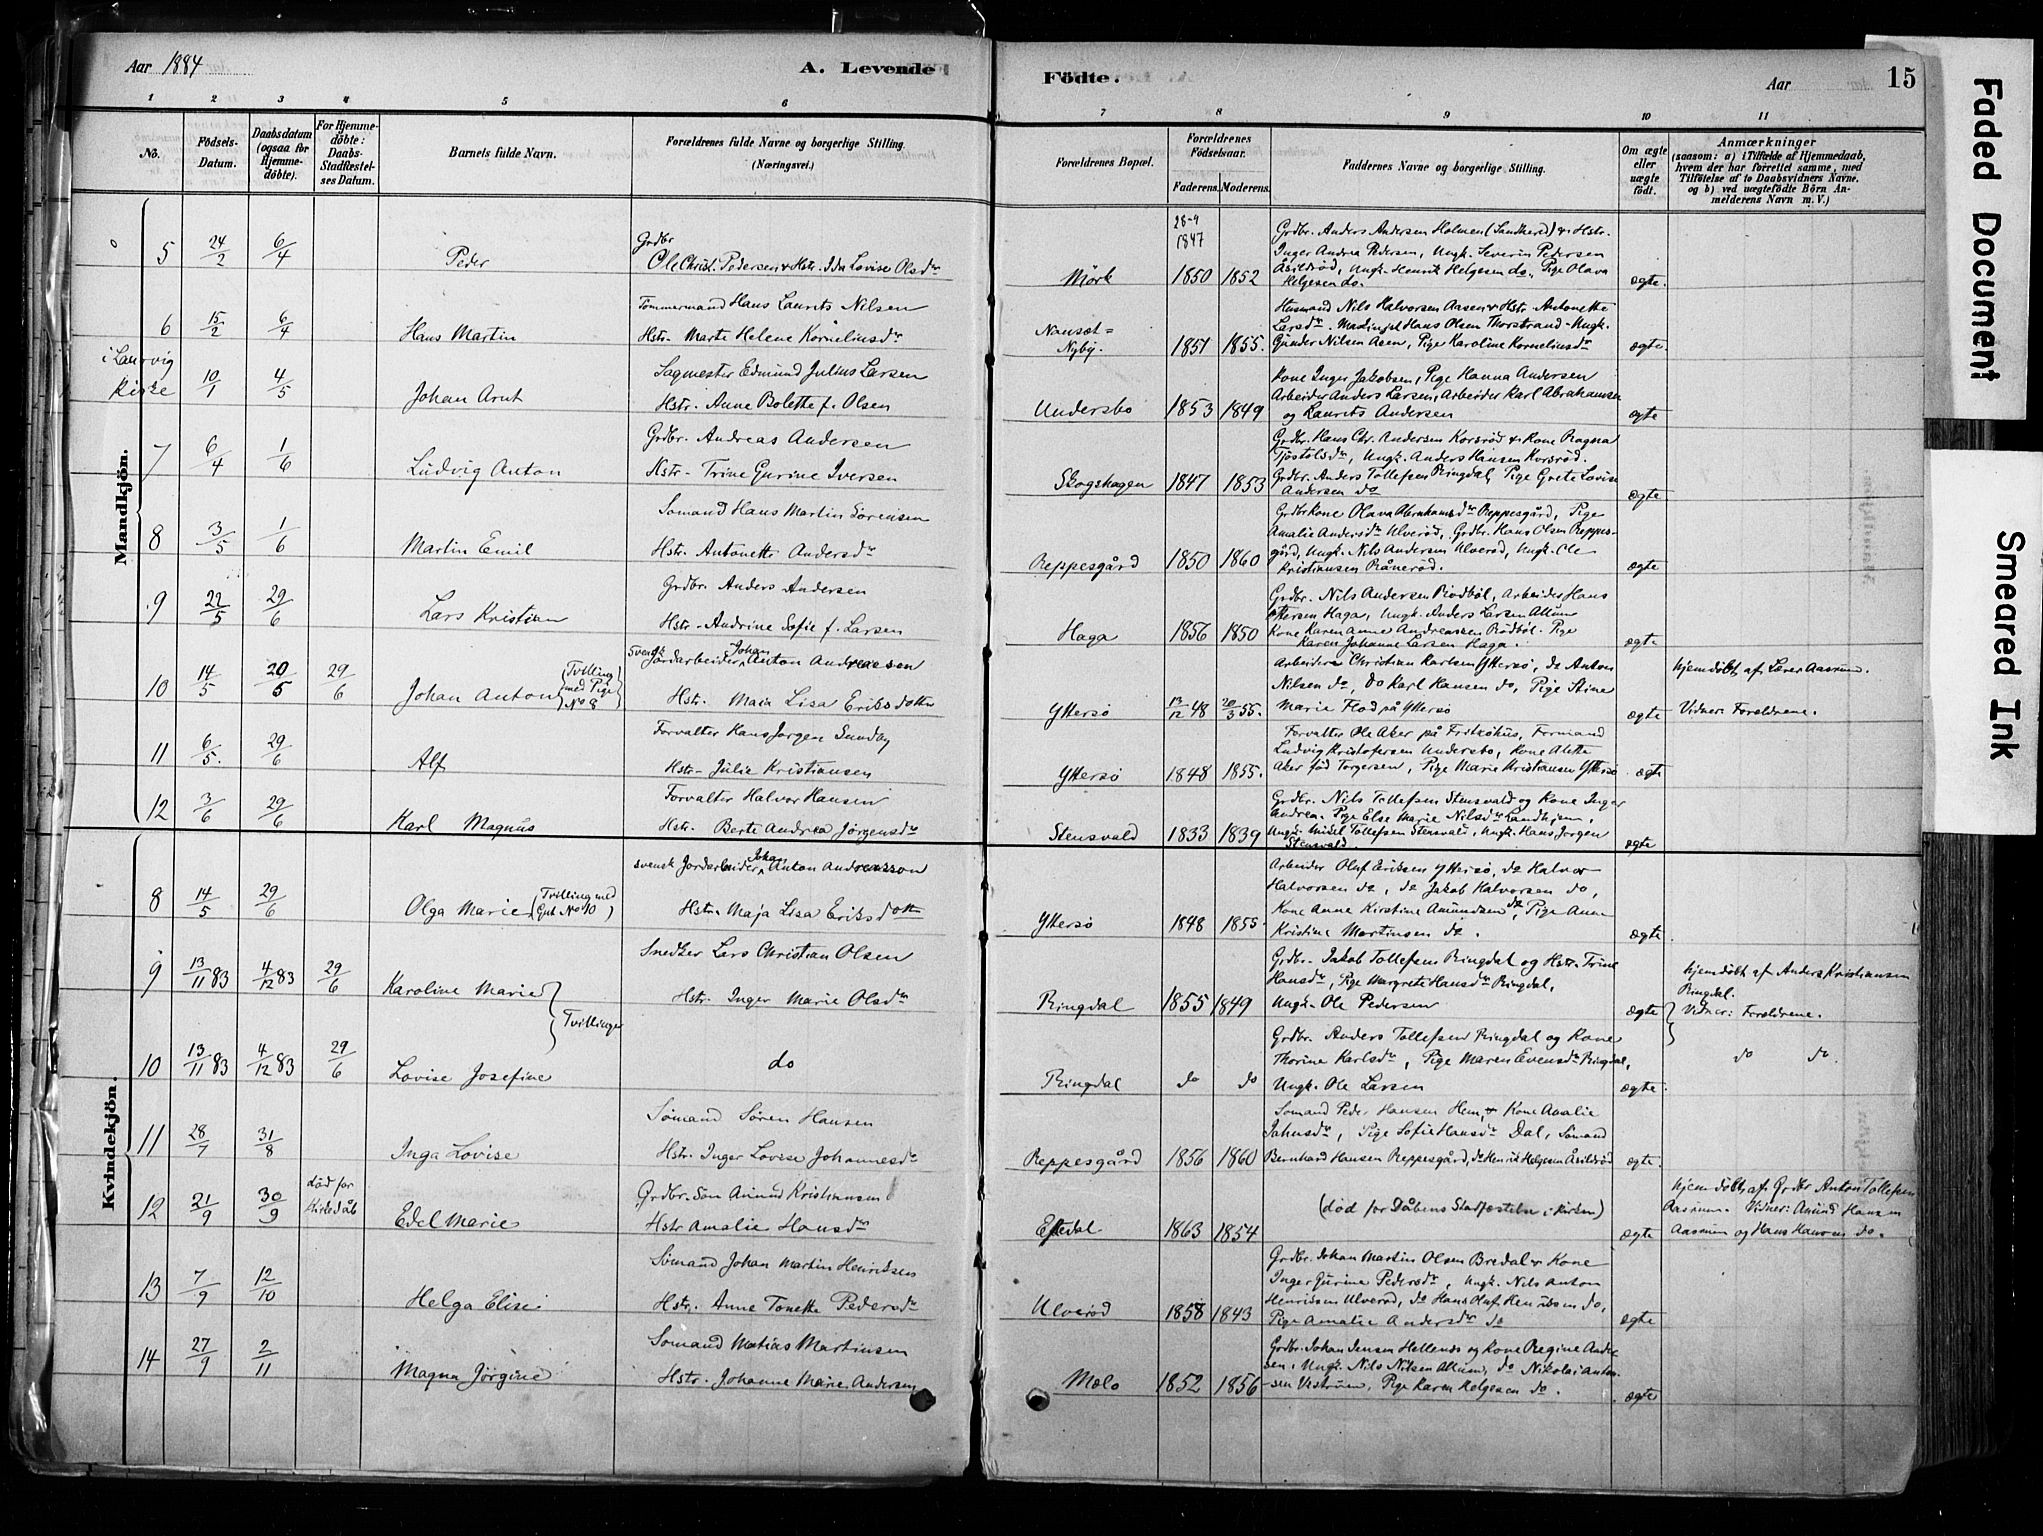 Aar 1884
A. Levende
Födte.
Aar
15
1 2 3 4 5 6 7 8 9 10 11
No.
Födsels-Datum.
Daabsdatum (ogsaa for Hjemmedöbte).
For Hjemmedöbte: Daabs-Stadfæstelses Datum.
Barnets fulde Navn.
Forældrenes fulde Navne og borgerlige Stilling. (Næringsvei.)
Forældrenes Bopæl.
Forældrenes Födselsaar.
Faderens. Moderens.
Faddernes Navne og borgerlige Stilling.
Om ægte eller uægte födt.
Anmærkninger
(saasom: a) i Tilfælde af Hjemmedaab, hvem der har forrettet samme, med Tilföielse af to Daabsvidners Navne, og b) ved uægtefödte Börn Anmelderens Navn m. V.)
Mandkjön.
5 24/2 6/4 Peder
Grdbr
Ole Christ. Pedersen & Hstr. Ida Lovise Olsdr
Mörk
28-9
1847
1850 1852
Grdbr. Anders Andersen Holmen (Sandkered) & Hstr.
Inger Andrea Pedersen, Ungk. Severin Pedersen
Åsildröd, Ungk. Henrik Helgesen do, Pige Olava
Helgesen do.
ægte.
6 15/2 6/4 Hans Martin
Tömmermand Hans Laurits Nilsen
Hstr. Marte Helene Korneliusdr
Nanset=
Nyby.
1851 1855.
Husmand Nils Halvorsen Aasen & Hstr. Antonette
Larsdr. Hans Olsen Thorstrand Ungk.
Gunder Nilsen Aasen, Pige Karoline Korneliusdr
ægte.
i Laurvig
Kirke 10/1 4/5 Johan Arnt
Sagmester Edmund Julius Larsen
Hstr. Anne Bolette f. Olsen
Undersbo 1853 1849
Kone Inger Jakobsen, Pige Hanna Andersen
Arbeider Anders Larsen, Arbeider Karl Abrahamsen
og Laurits Andersen
ægte
7 6/4 1/6 Ludvig Anton
Grdbr. Andreas Andersen
Hstr- Trine Gurine Iversen
Skogshagen 1847 1853
Grdbr. Hans Chr. Andersen Korsröd & Kone Ragna
Tjöstolsdr, Ungk. Anders Hansen Korsröd.
Grdbr. Anders Tollefsen Ringdal, Pige Grete Lovise
Andersen do
ægte
8 3/5 1/6 Martin Emil
Sömand Hans Martin Sörensen
Hstr. Antonette Andersdr
Reppesgård 1850 1860
Grdbrkone Olava Abrahamsdr Reppesgård, Pige
Amalie Andersdr Ulveröd, Grdbr. Hans Olsen Reppes-
gård, Ungk. Nils Andersen Ulveröd, Ungk. Ole
Kristiansen Råneröd.
ægte
9 22/5 29/6 Lars Kristian
Grdbr. Anders Andersen
Hstr- Andrine Sofie f. Larsen
Haga 1856 1850
Grdbr. Nils Andersen Rödböl, Arbeider Hans
Haga, Ungk. Anders Larsen Allum
Kone Karen Anne Andreassen Rödböl. Pige
Karen Johanne Larsen Haga.
ægte
10 14/5 20/5 29/6 Johan Anton (Tvilling med Pige No 8)
Svensk Jordarbeider Johan Anton Andreassen
Hstr. Maia Lisa Eriksdotter
Yttersö 13/12 48 20/3 55.
Arbeider Christian Karlsen Yttersö, do Anton
Nilsen do, do Karl Hansen do, Pige Stine
Marie Flod på Yttersö
ægte
Hjemdöbt af Lærer Aasrum.
Vidner: Forældrene.
11 6/5. 29/6 Alf
Forvalter Hans Jörgen Sunday
Hstr- Julie Kristiansen
Yttersö 1848 1855.
Forvalter Ole Aker på Fritzöhus, Formand
Ludvig Kristofersen Undersbo, Kone Alette
Aker föd Torgersen, Pige Marie Kristiansen Yttersö
ægte
12 3/6 29/6 Karl Magnus
Forvalter Halvor Hansen
Hstr. Berte Andrea Jörgensdr
Stensvald 1833 1839
Grdbr. Nils Tollefsen Stensvald og Kone Inger
Andrea. Pige Else Marie Nilsdr Landhjem,
Ungk. Tollefsen Stensvald, Ungk. Hans Jörgen
Stensvald
ægte
Kvindekjön.
8 14/5 29/6 Olga Marie (Tvilling med Gut No 10)
svensk Jordarbeider Johan Anton Andreasson
Hstr. Maja Lisa Eriksdottr
Yttersö 1848 1855.
Arbeider Oluf Eriksen Yttersö, do Halvor
Halvorsen do, do Jakob Halvorsen do,
Kone Anne Kirstine Amundsen do, Pige Anne
Kristine Martinsen do.
ægte
9 13/11 83 4/12 83 29/6 Karoline Marie
Tvillinger
Snedker Lars Christian Olsen
Hstr. Inger Marie Olsdr
Ringdal 1855 1849
Grdbr. Jakob Tollefsen Ringdal og Hstr. Trine
Hansdr, Pige Margrete Hansdr Ringdal,
Ungk. Ole Pedersen
ægte
Hjemdöbt af Anders Kristiansen
Ringdal.
Vidner: Forældrene.
10 13/11 83 4/12 83 29/6 Lovise Josefine
do
Ringdal do do
Grdbr. Anders Tollefsen Ringdal og Kone
Thorine Karlsdr, Pige Maren Evensdr Ringdal,
Ungk. Ole Larsen
ægte.
do do.
11 28/7 31/8 Inga Lovise
Sömand Sören Hansen
Hstr. Inger Lovise Johannesdr
Reppesgård 1856 1860
Sömand Peder Hansen Hem, & Kone Amalie
Jahnsdr, Pige Sofie Hansdr Dal, Sömand
Bernhard Hansen Reppesgård, do Henrik Helgesen Åsildröd
ægte.
12 21/9 30/9 död for Kirkedåb Edel Marie
Grdbr. Sön Amund Kristiansen
Hstr Amalie Hansdr
Eftedal 1863 1854
(död for Dåbens Stadfæstelse i Kirken)
ægte
Hjemdöbt af Grdbr Anton Tollefsen
Aasrum. Vidner: Amund Hansen
Aasrum og Hans Hansen do.
13 7/9 12/10 Helga Elise
Sömand Johan Martin Henriksen
Hstr. Anne Tonette Pedersdr
Ulveröd 1858 1843
Grdbr. Johan Martin Olsen Bredal & Kone
Inger Jurine Pedersdr, Ungk. Nils Anton
Henriksen Ulveröd, do Hans Oluf Henriksen do,
Pige Amalie Andersdr do
ægte
14 27/9 2/11 Magna Jörgine
Sömand Matias Martinsen
Hstr. Johanne Marie Andersen
Melö 1852 1856
Grdbr. Johan Jensen Hellenes og Kone Regine Ander-
sen, Ungk. Nils Nilsen Allum, do Nikolai Anton-
sen Vestrum, Pige Karen Helgesen do.
ægte
Faded Document
Smeared Ink